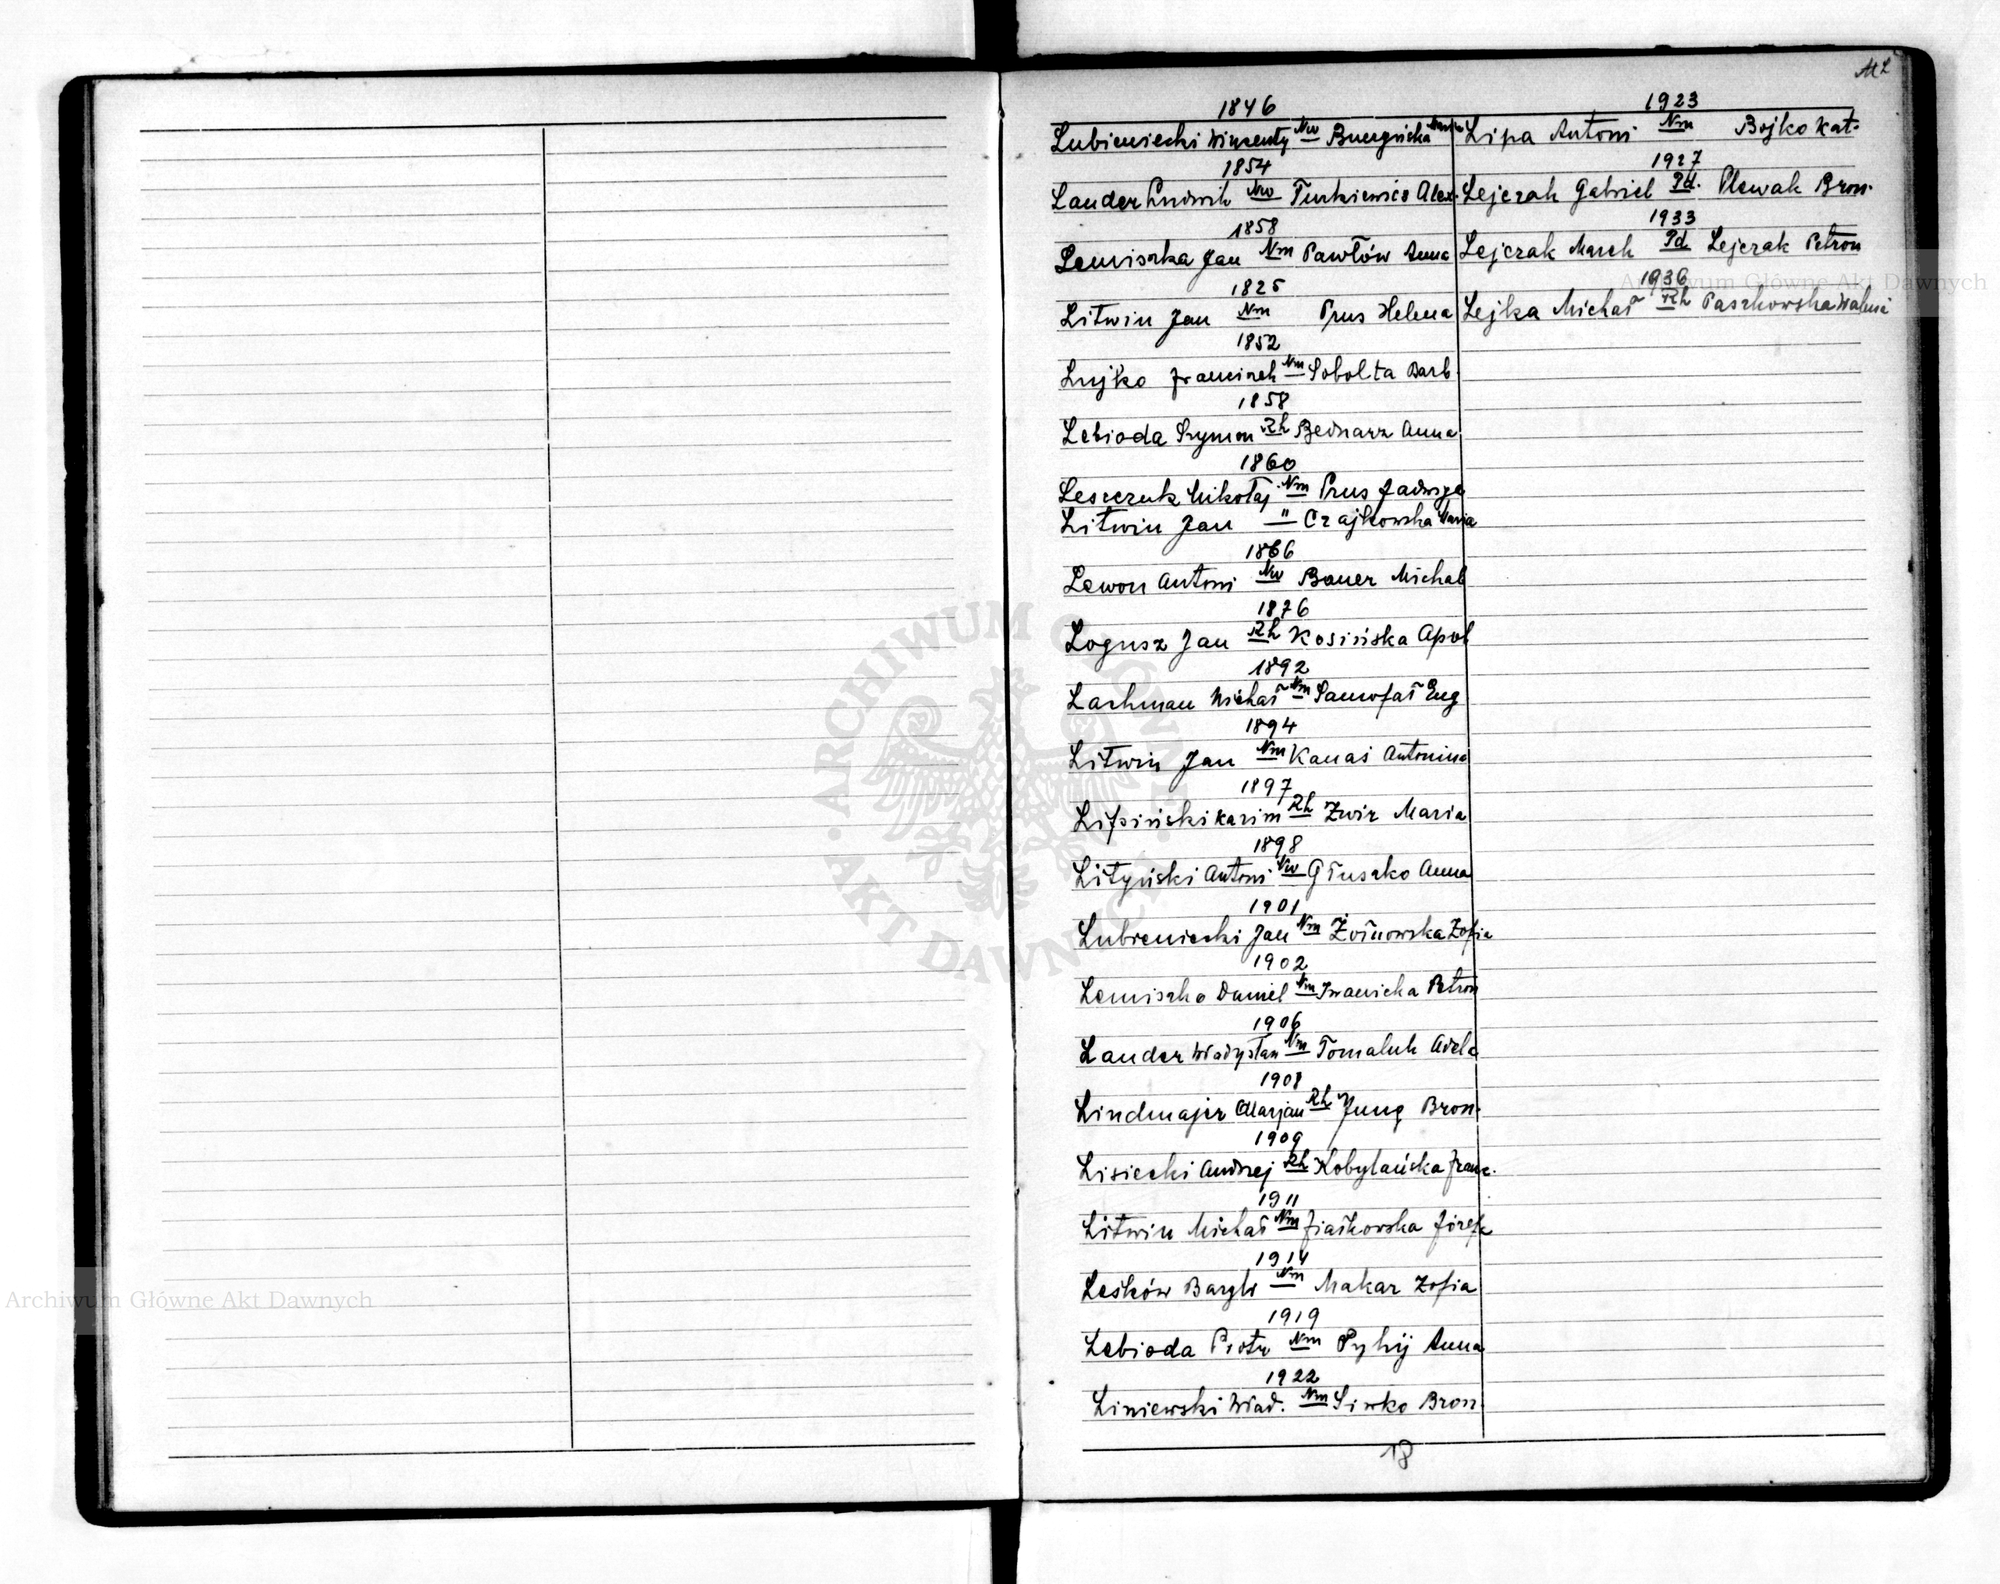 1846
Lubieniecki Wincenty Nw
1854
Lander Ludwik Nw Turkiewicz Alex.
1858
Lemiszka Jan Nm Pawłów Anna
1825
Litwin Jan Nm Prus Helena
1852
Lujko Franciszek Nm Sobolta Barb.
1858
Lebioda Szymon Rh Bednarz Anna
1860
Leszczuk Mikołaj Nm Prus Jadwiga
Litwin Jan " Czajkowska Maria
1866
Lewon Antoni Nw Bauer Michal
1876
Logusz Jan Rh Kosińska Apol
1892
Lachman Michał Nm Eug
1894
Litwin Jan Nm Kanas Antonina
1897
Rh Zwir Maria
1898
Lityński Antoni Nw Głuszko Anna
1901
Lubieniecki Jan Nm Żółnowska Zofia
1902
Lemiszko Daniel Nm Iwanicka Petron
1906
Lander Władysław Nm Tomaluk Adela
1908
Lindmajer Marjan Rh Jung Bron.
1909
Lisiecki Andrzej Rh Kobylańska Franc.
1911
Litwin Michał Nm Józefa
1914
Leśków Bazyli Nm Makar Zofia
1919
Lebioda Piotr Nm Anna
1922
Liniewski Wład. Nm Siwko Bron.
18
1923
Lipa Antoni Nm Bojko Kat.
1927
Lejczak Gabriel Pd. Plewak Bron.
1933
Lejczak Marek Pd Lejczak Petron
1936
Lejka Michał Rh Paszkowska
Archiwum Główne Akt Dawnych
ARCHIWUM GŁÓWNE AKT DAWNYCH
Archiwum Główne Akt Dawnych